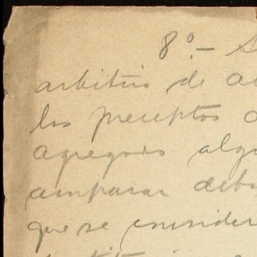 8º.- S
arbitrio de a
los preceptos
agregado alg
amparar deb
que se consider